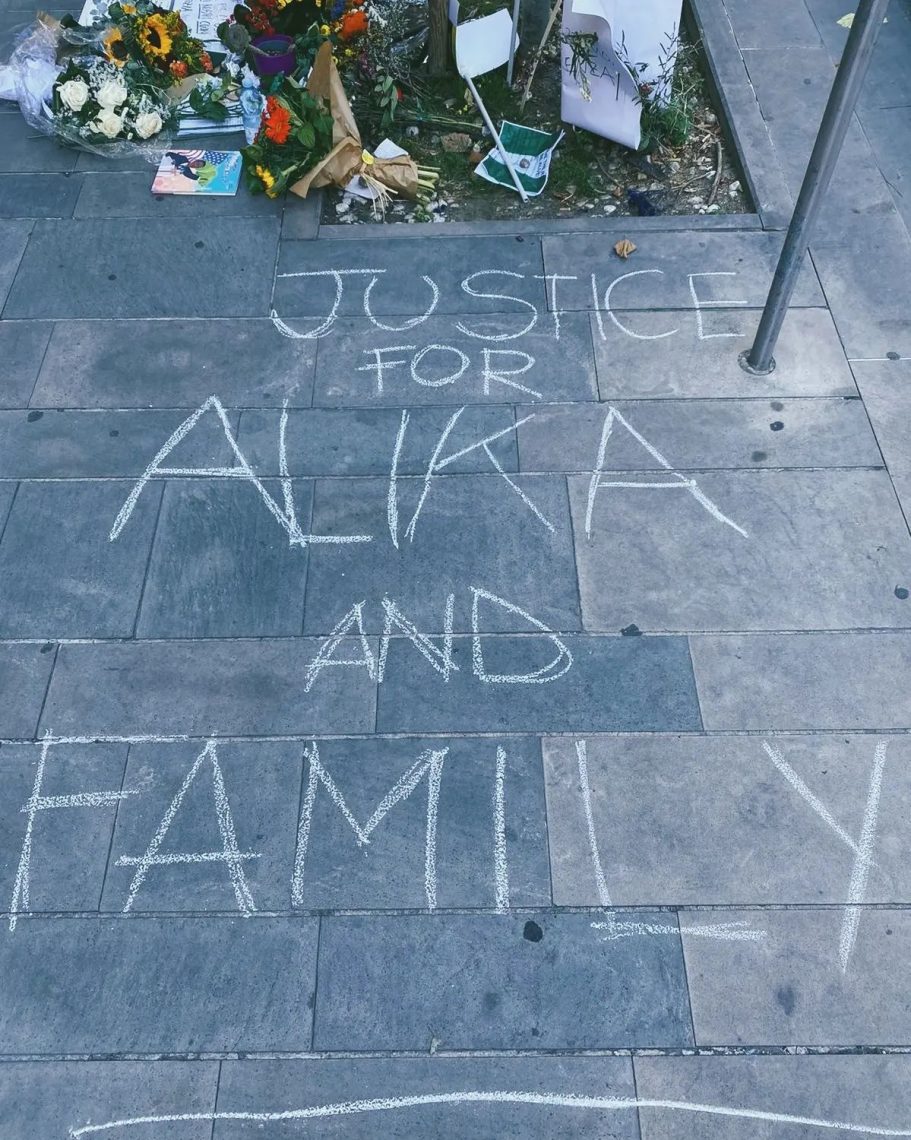 JUSTICE
FOR
ALIKA
AND
FAMILY